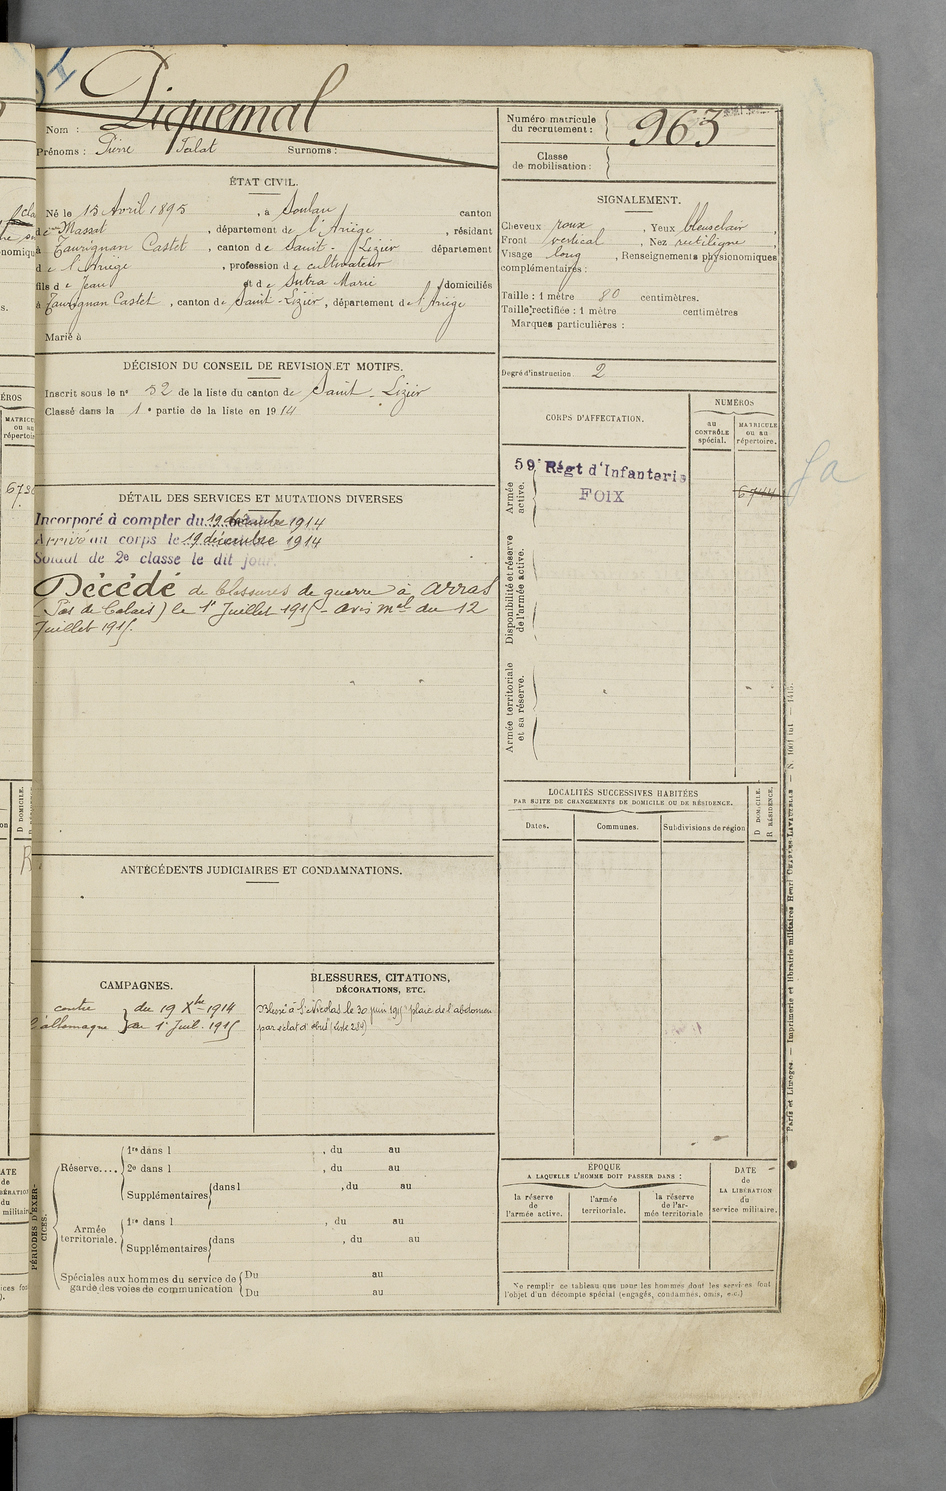 Piquemal
Nom :
Prénoms : Pierre Surnoms :
Numéro matricule
du recrutement : 963
Classe
de mobilisation :
ÉTAT CIVIL.
Né le 15 Avril 1895, à Soulan canton
de Massat, département de l'Ariège, résidant
à Taurignan Castet, canton de Saint-Lizier département
de l'Ariège, profession de cultivateur
fils de Jean et de Sutra Marie domiciliés
à Taurignan Castet, canton de Saint-Lizier, département de l'Ariège
Marié à
SIGNALEMENT.
Cheveux roux, Yeux bleus clair,
Front vertical, Nez rectiligne,
Visage long, Renseignements physionomiques
complémentaires :
Taille : 1 mètre 80 centimètres.
Taille rectifiée : 1 mètre centimètres
Marques particulières :
Degré d'instruction 2
DÉCISION DU CONSEIL DE REVISION ET MOTIFS.
Inscrit sous le n° 52 de la liste du canton de Saint-Lizier
Classé dans la 1e partie de la liste en 1914
CORPS D'AFFECTATION.
NUMÉROS
au
CONTRÔLE
spécial.
MATRICULE
ou au
répertoire.
Armée
active.
59e Régt d'Infanterie
FOIX
6744
Disponibilité et réserve
de l'armée active.
Armée territoriale
et sa réserve.
DÉTAIL DES SERVICES ET MUTATIONS DIVERSES
Incorporé à compter du 19 décembre 1914
Arrivé au corps le 19 décembre 1914
Soldat de 2e classe le dit jour.
Décédé de blessures de guerre à Arras
(Pas de Calais) le 1er Juillet 1915 - avis mel du 12
Juillet 1915.
LOCALITÉS SUCCESSIVES HABITÉES
PAR SUITE DE CHANGEMENTS DE DOMICILE OU DE RÉSIDENCE.
Dates.
Communes.
Subdivisions de région
D DOMICILE.
R RÉSIDENCE.
ANTÉCÉDENTS JUDICIAIRES ET CONDAMNATIONS.
CAMPAGNES.
contre } du 19 Xbre 1914
l'allemagne } au 1er Juil. 1915
BLESSURES, CITATIONS,
DÉCORATIONS, ETC.
Blessé à St Nicolas le 30 juin 1915 plaie de l'abdomen
par éclat d'obus
PÉRIODES D'EXER-
CICES.
Réserve....
1re dans l , du au
2e dans l , du au
Supplémentaires dans l , du au
Armée
territoriale.
1re dans l , du au
Supplémentaires dans , du au
Spéciales aux hommes du service de
garde des voies de communication
Du au
Du au
ÉPOQUE
A LAQUELLE L'HOMME DOIT PASSER DANS :
la réserve
de
l'armée active.
l'armée
territoriale.
la réserve
de l'ar-
mée territoriale
DATE
de
LA LIBÉRATION
du
service militaire.
Ne remplir ce tableau que pour les hommes dont les services font
l'objet d'un décompte spécial (engagés, condamnés, omis, etc.)
Paris et Limoges. — Imprimerie et librairie militaires Henri CHARLES-LAVAUZELLE